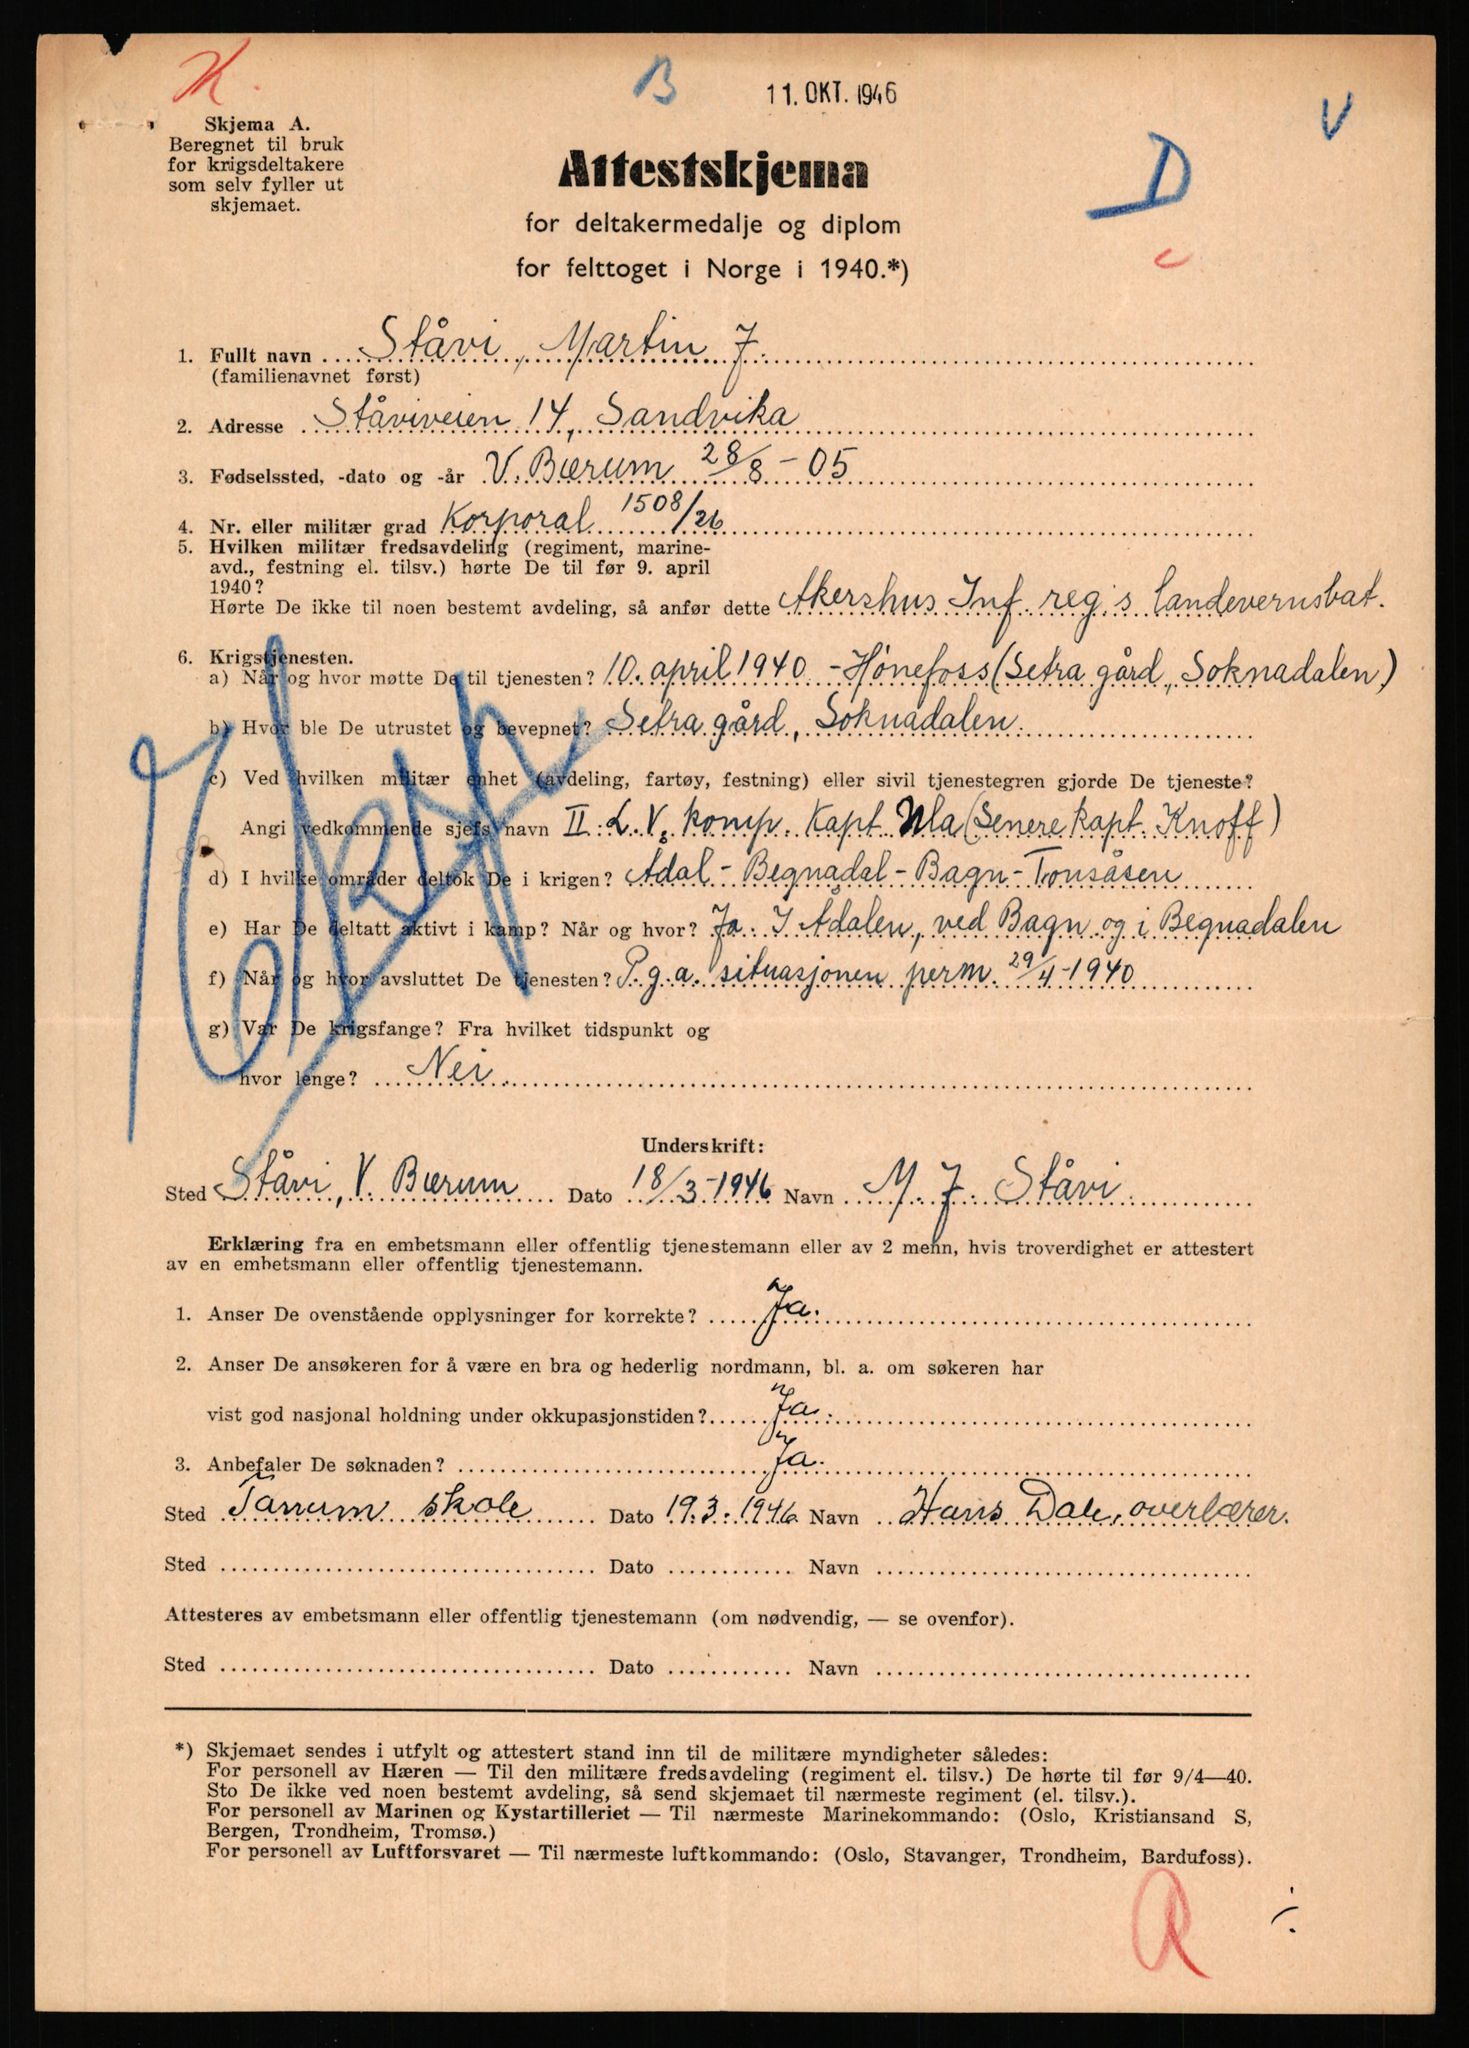 K.
B
11. OKT. 1946
V
Skjema A.
Beregnet til bruk
for krigsdeltakere
som selv fyller ut
skjemaet.
D
c
Attestskjema
for deltakermedalje og diplom
for felttoget i Norge i 1940.*)
1. Fullt navn Ståvi, Martin J.
(familienavnet først)
2. Adresse Ståviveien 14, Sandvika
3. Fødselssted, -dato og -år V. Bærum 28/8 - 05
4. Nr. eller militær grad Korporal 1508/26
5. Hvilken militær fredsavdeling (regiment, marine-
avd., festning el. tilsv.) hørte De til før 9. april
1940?
Hørte De ikke til noen bestemt avdeling, så anfør dette Akershus Inf. reg.s landevernsbat.
6. Krigstjenesten.
a) Når og hvor møtte De til tjenesten? 10. april 1940 - Hønefoss (Setra gård, Soknadalen)
b) Hvor ble De utrustet og bevepnet? Setra gård, Soknadalen.
c) Ved hvilken militær enhet (avdeling, fartøy, festning) eller sivil tjenestegren gjorde De tjeneste?
Angi vedkommende sjefs navn II. L. V. komp. Kapt. Ula (Senere kapt. Knoff)
d) I hvilke områder deltok De i krigen? Ådal - Begnadal - Bagn - Tonsåsen
e) Har De deltatt aktivt i kamp? Når og hvor? Ja. I Ådalen, ved Bagn og i Begnadalen
f) Når og hvor avsluttet De tjenesten? P.g.a. situasjonen perm. 29/4 - 1940
g) Var De krigsfange? Fra hvilket tidspunkt og
hvor lenge? Nei.
Underskrift:
Sted Ståvi, V. Bærum Dato 18/3 - 1946 Navn M. J. Ståvi.
Erklæring fra en embetsmann eller offentlig tjenestemann eller av 2 menn, hvis troverdighet er attestert
av en embetsmann eller offentlig tjenestemann.
1. Anser De ovenstående opplysninger for korrekte? Ja.
2. Anser De ansøkeren for å være en bra og hederlig nordmann, bl. a. om søkeren har
vist god nasjonal holdning under okkupasjonstiden? Ja.
3. Anbefaler De søknaden? Ja.
Sted Tanum skole Dato 19.3.1946 Navn Hans Dale, overlærer.
Sted Dato Navn
Attesteres av embetsmann eller offentlig tjenestemann (om nødvendig, — se ovenfor).
Sted Dato Navn
*) Skjemaet sendes i utfylt og attestert stand inn til de militære myndigheter således:
For personell av Hæren — Til den militære fredsavdeling (regiment el. tilsv.) De hørte til før 9/4—40.
Sto De ikke ved noen bestemt avdeling, så send skjemaet til nærmeste regiment (el. tilsv.).
For personell av Marinen og Kystartilleriet — Til nærmeste Marinekommando: (Oslo, Kristiansand S,
Bergen, Trondheim, Tromsø.)
For personell av Luftforsvaret — Til nærmeste luftkommando: (Oslo, Stavanger, Trondheim, Bardufoss).